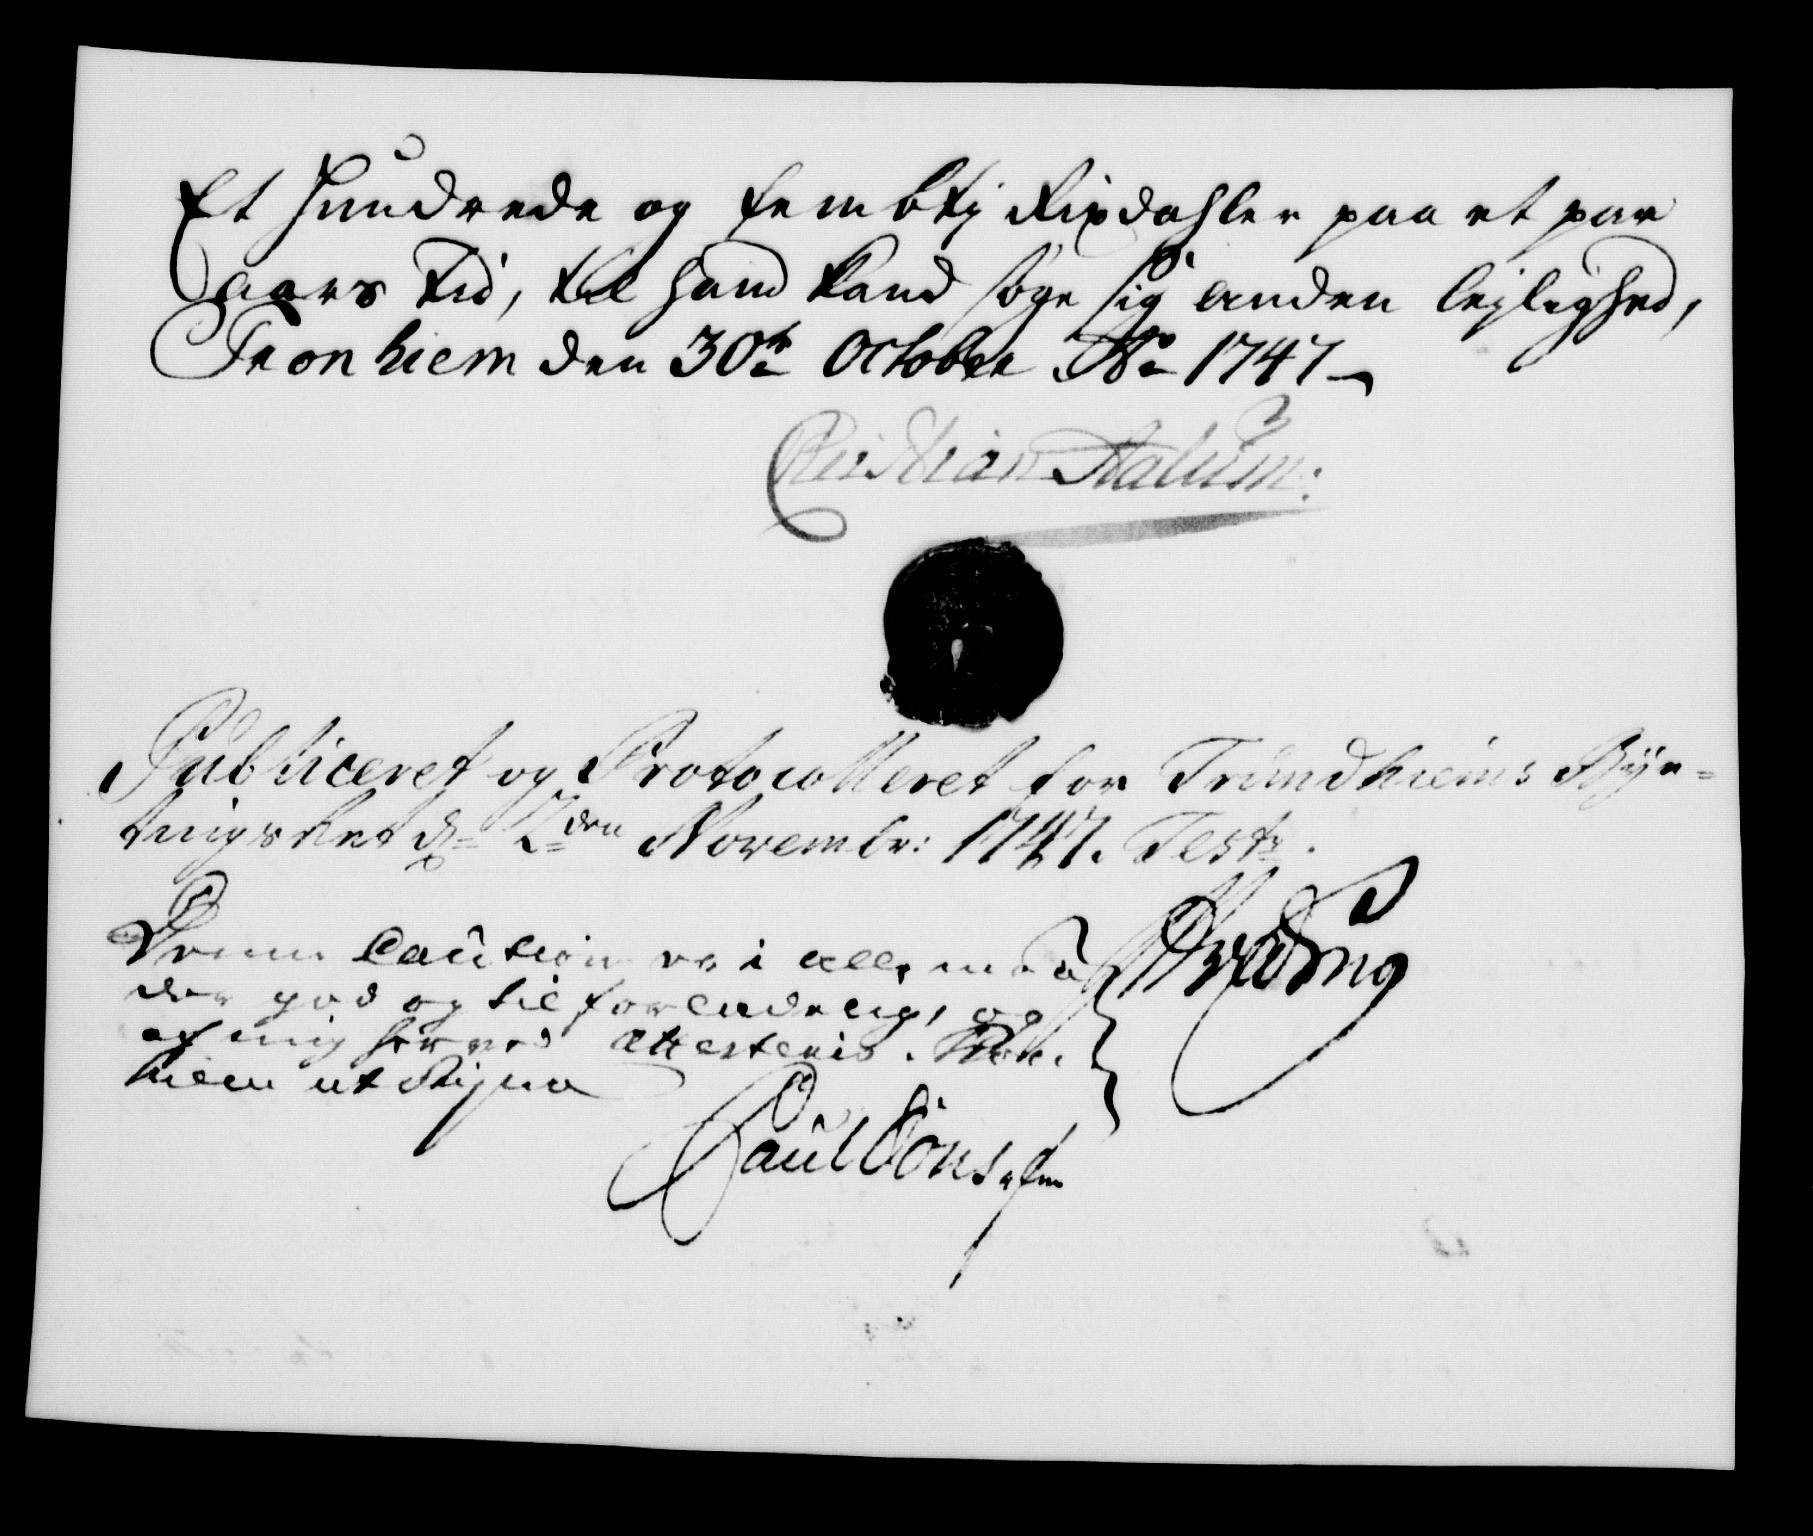 Et Hundrede og fembtj Rixdahler paa et par
aars tid, til hand kand søge sig anden lejlighed,
Tronhiem den 30te October Ao 1747
Christian Aalum:
Publiceret og Protocolleret for Trundhiems Bye=
tingsRet d= 2den Novembr: 1747. Test:
Denne Caution er i alle maa
der god og tilforladelig, og
af mig herved attesteris. Tron
hiem ut Supra
Paul Jonsøn